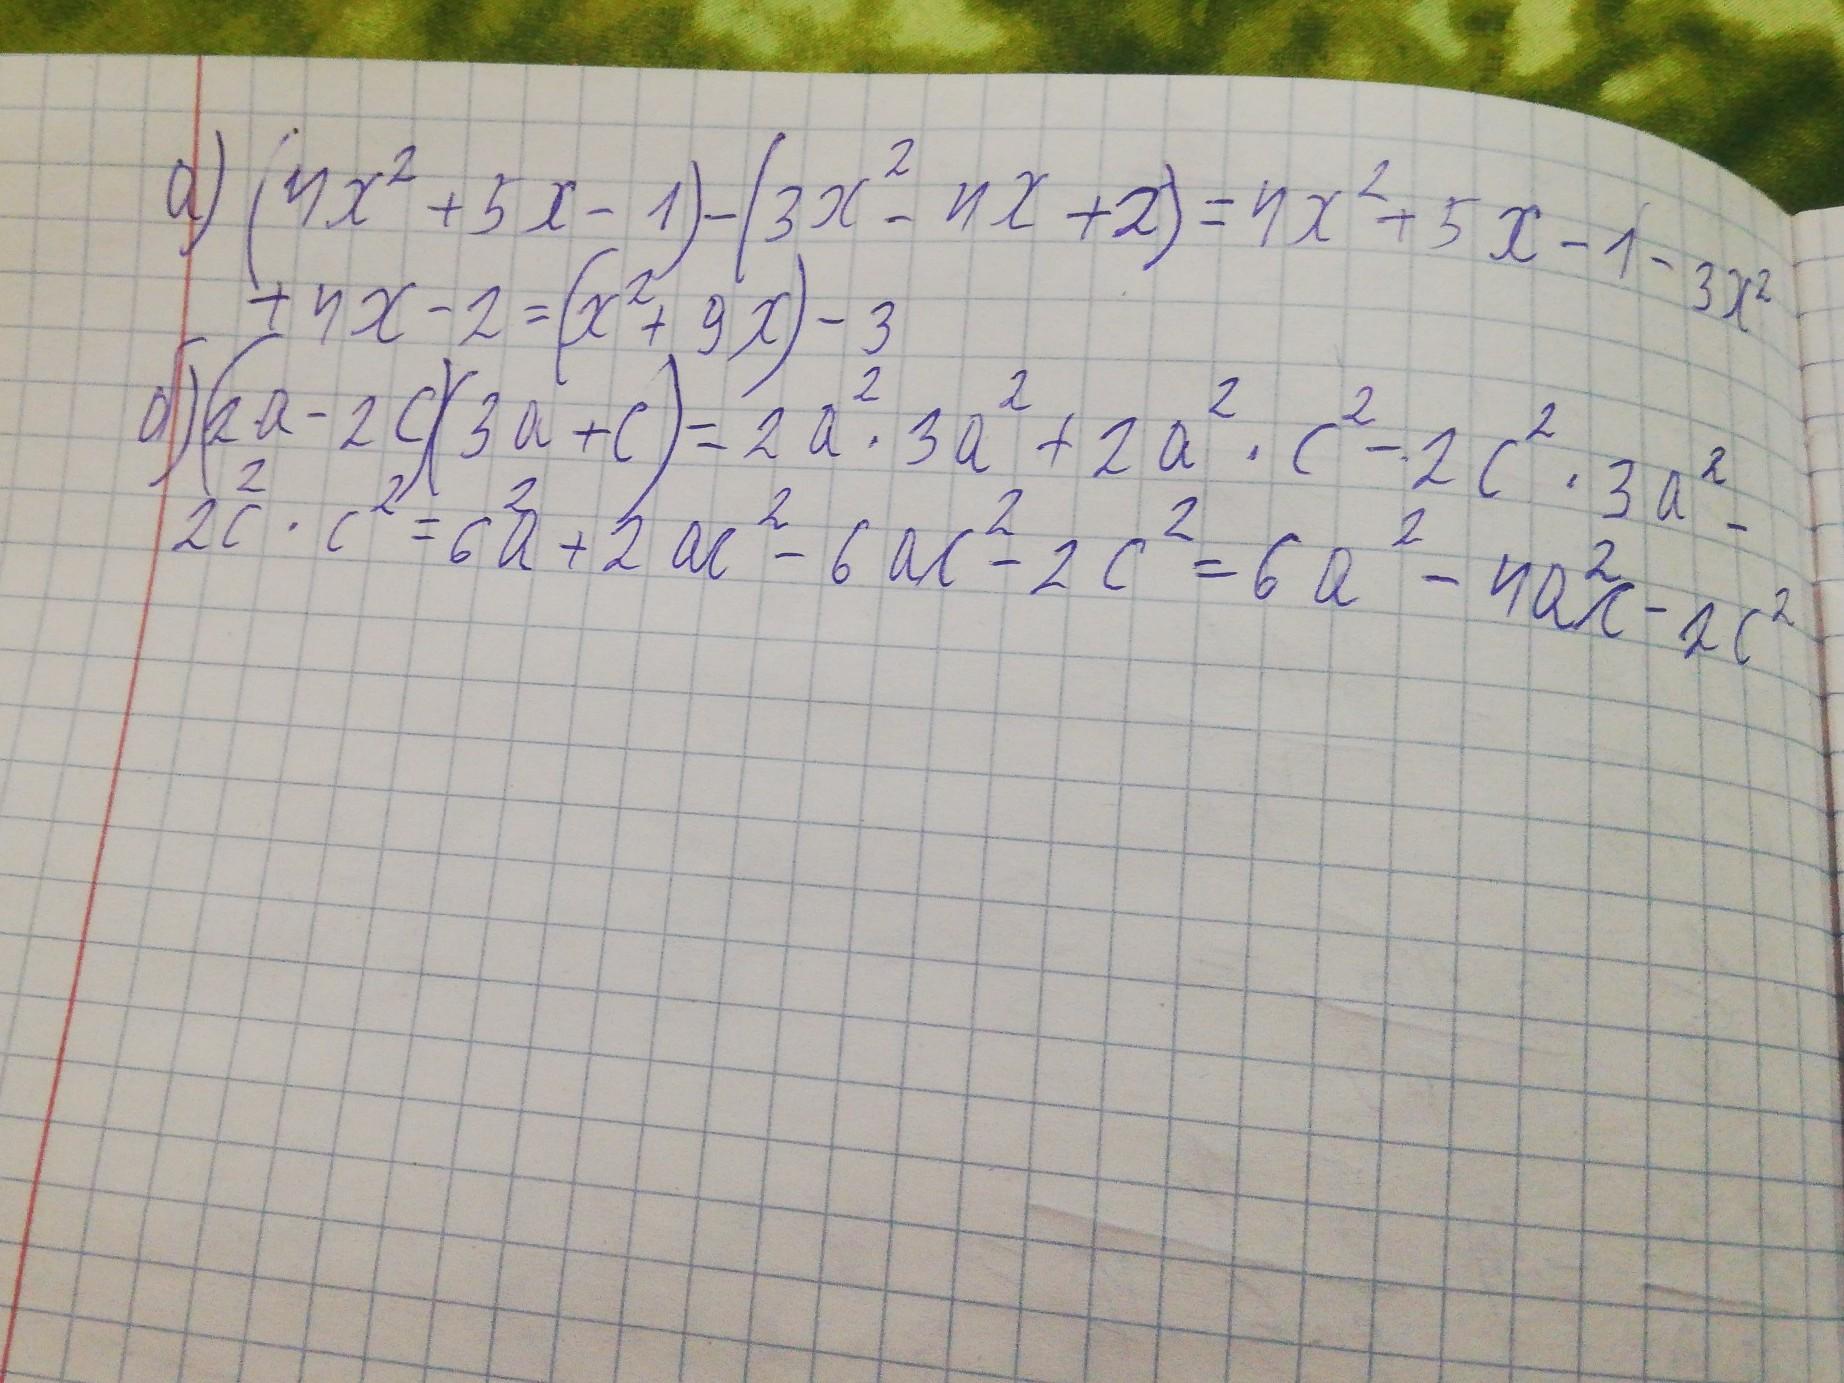 а) (4x² + 5x - 1) - (3x² - 4x + 2) = 4x² + 5x - 1 - 3x²
+ 4x - 2 = (x² + 9x) - 3
б) (2a - 2c)(3a + c) = 2a² · 3a² + 2a² · c² - 2c² · 3a² -
2c² · c² = 6a² + 2ac² - 6ac² - 2c² = 6a² - 4a²c - 2c²